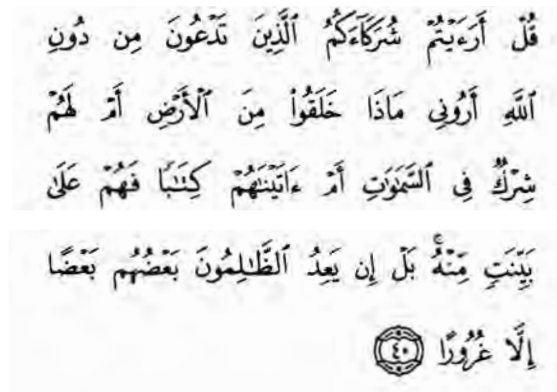 قُلْ أَرَءَيْتُمْ شُرَكَآءَكُمُ ٱلَّذِينَ تَدْعُونَ مِن دُونِ
ٱللَّهِ أَرُونِى مَاذَا خَلَقُوا۟ مِنَ ٱلْأَرْضِ أَمْ لَهُمْ
شِرْكٌ فِى ٱلسَّمَٰوَٰتِ أَمْ ءَاتَيْنَٰهُمْ كِتَٰبًا فَهُمْ عَلَىٰ
بَيِّنَتٍ مِّنْهُ ۚ بَلْ إِن يَعِدُ ٱلظَّٰلِمُونَ بَعْضُهُم بَعْضًا
إِلَّا غُرُورًا ﴿٤٠﴾